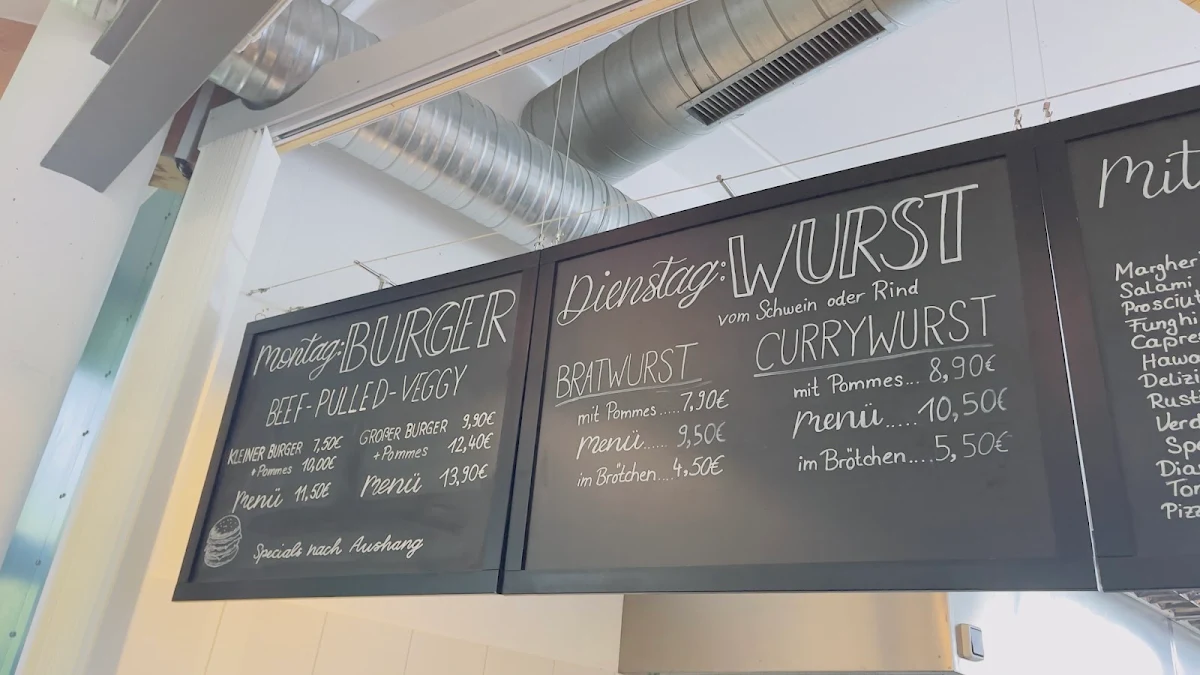 Montag: BURGER
BEEF-PULLED-VEGGY
KLEINER BURGER 7,50€
+Pommes 10,00€
Menü 11,50€
GROßER BURGER 9,90€
+Pommes 12,40€
Menü 13,90€
Specials nach Aushang
Dienstag: WURST
vom Schwein oder Rind
BRATWURST
mit Pommes.....7,90€
Menü.....9,50€
im Brötchen....4,50€
CURRYWURST
mit Pommes...8,90€
Menü.....10,50€
im Brötchen....5,50€
Mit
Margher
Salami
Prosciut
Funghi
Capres
Hawa
Delizi
Rust
Verd
Spe
Dia
Ton
Pizz